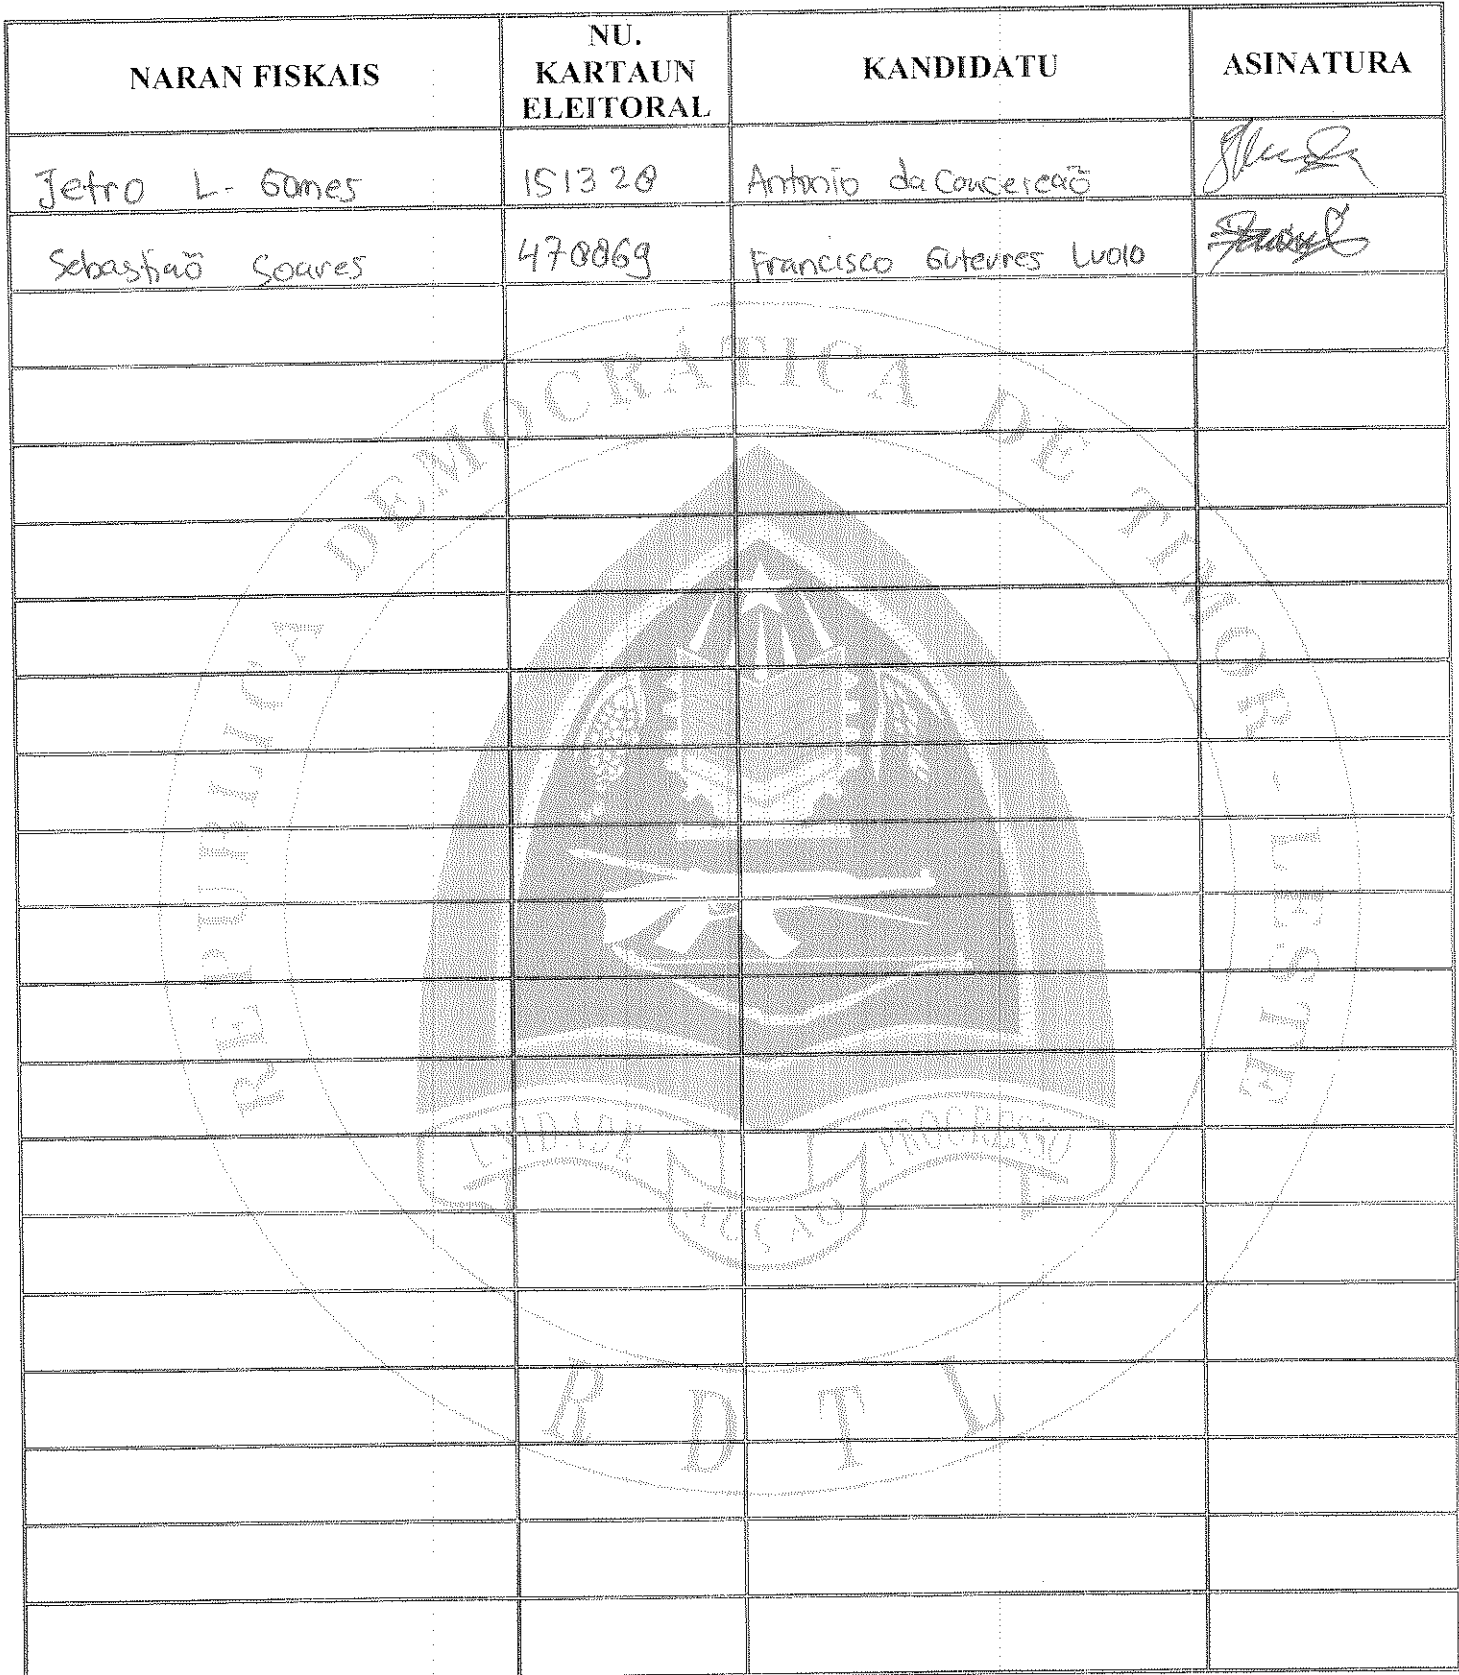 NARAN FISKAIS
NU. KARTAUN ELEITORAL
KANDIDATU
ASINATURA
Jetro L. Gomes 151328 Antonio da Conceicaõ
Sebastiaõ Soares 478869 Francisco Guterres Luolo
REPUBLICA DEMOCRÁTICA DE TIMOR - LESTE
UNIDADE ACÇÃO PROGRESSO
R D T L